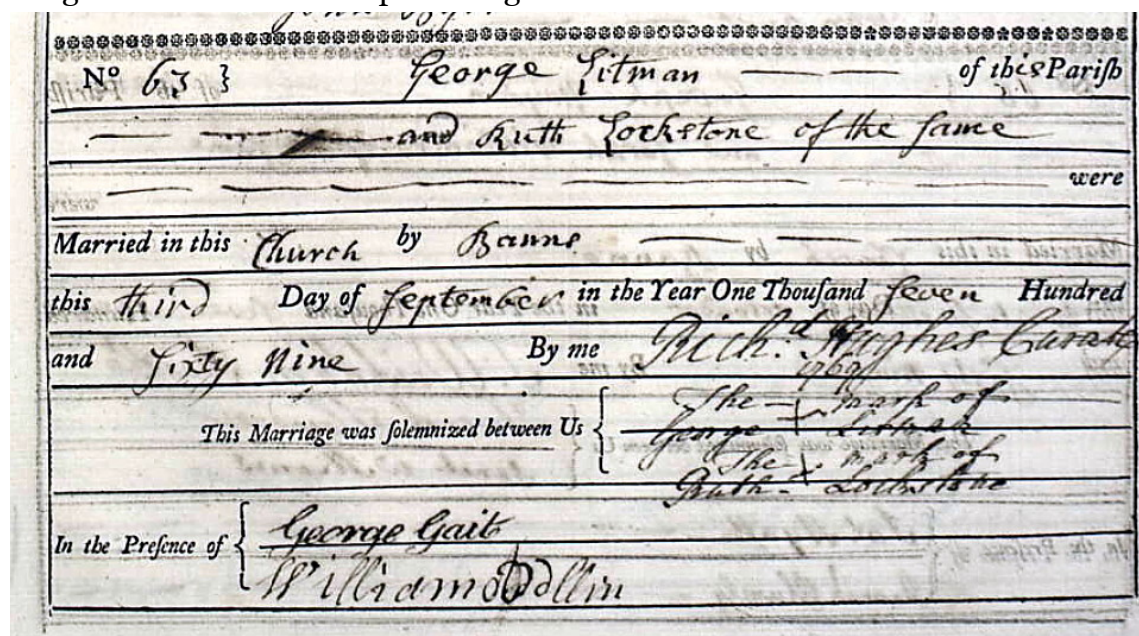 Nº 63 } George Litman of this Pariſh
and Ruth Lockstone of the ſame
were
Married in this Church by Banns
this third Day of ſeptember in the Year One Thouſand ſeven Hundred
and ſixty Nine By me Rich.d Hughes Curate
1769
This Marriage was ſolemnized between Us { The mark of
George Litman
The mark of
Ruth Lockstone
In the Preſence of { George Gait
William